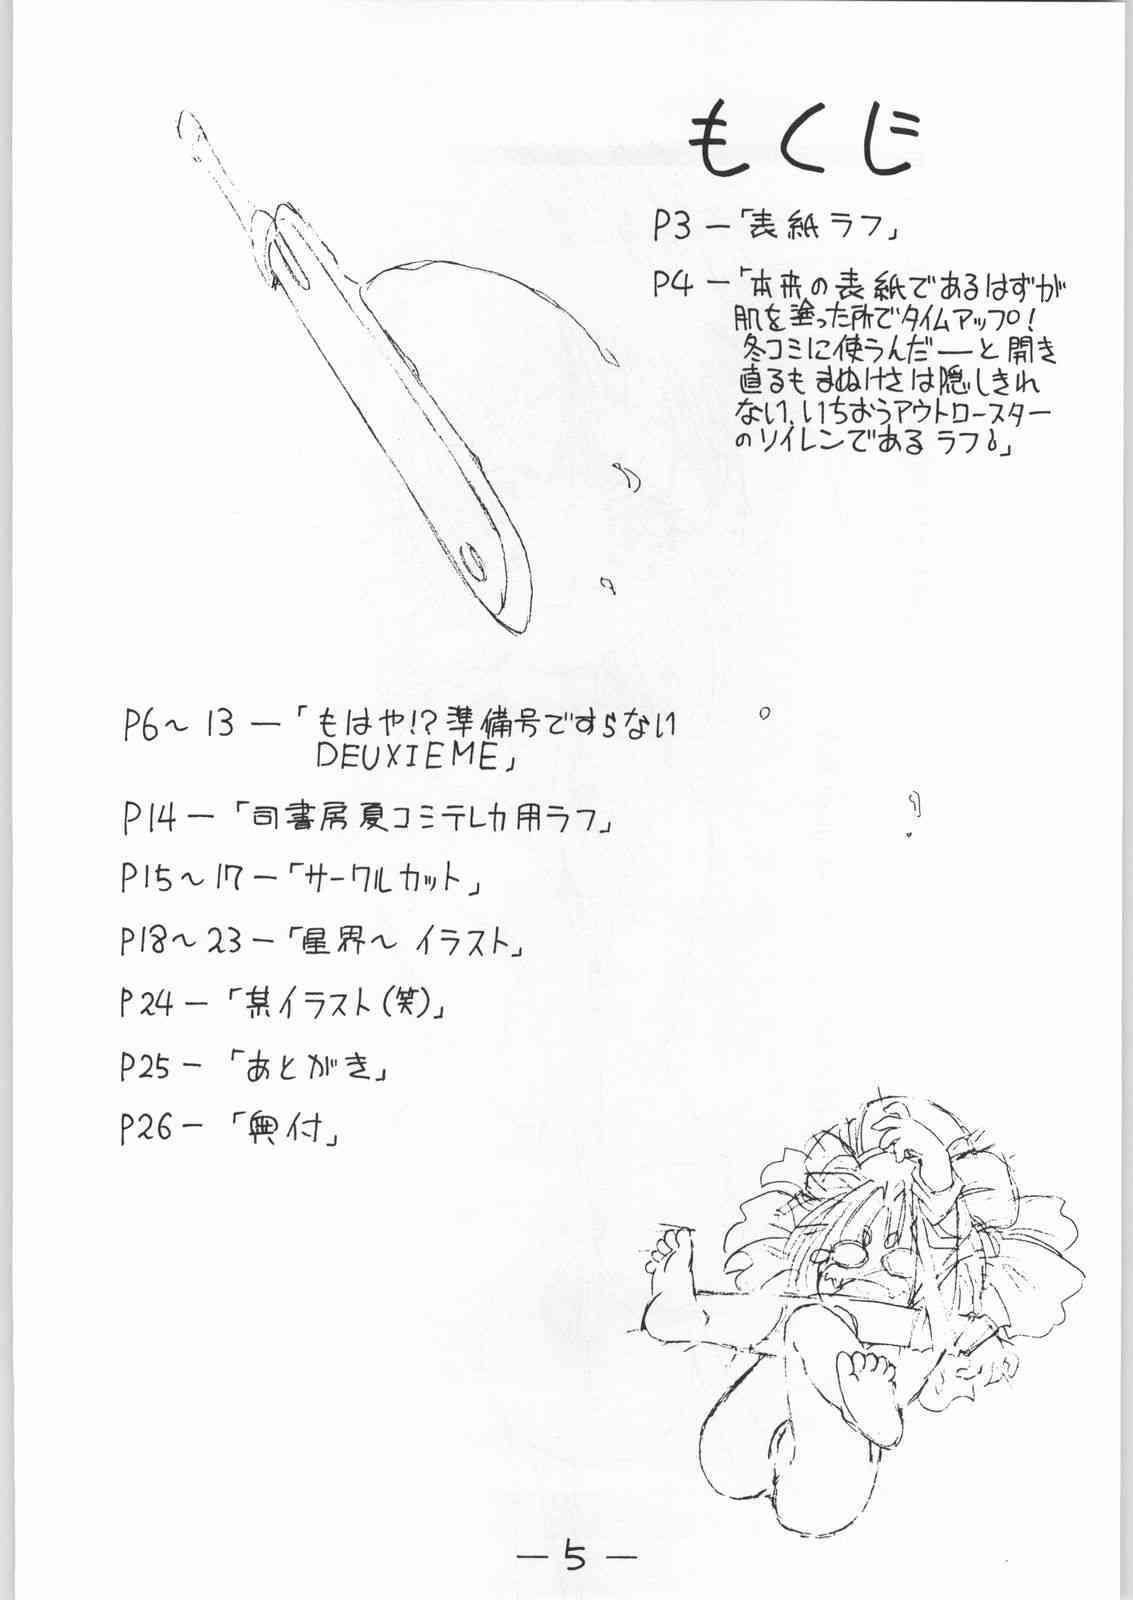 もくじ
P3－「表紙ラフ」
P4－「本来の表紙であるはずが
肌を塗った所でタイムアップ!
冬コミに使うんだ－と開き
直るもまぬけさは隠しきれ
ない、いちおうアウトロースター
のソイレンであるラフ。」
P6～13－「もはや!?準備号ですらない
DEUXIEME」
P14－「司書房夏コミテレカ用ラフ」
P15～17－「サークルカット」
P18～23－「星界～イラスト」
P24－「某イラスト(笑)」
P25－「あとがき」
P26－「奥付」
－5－